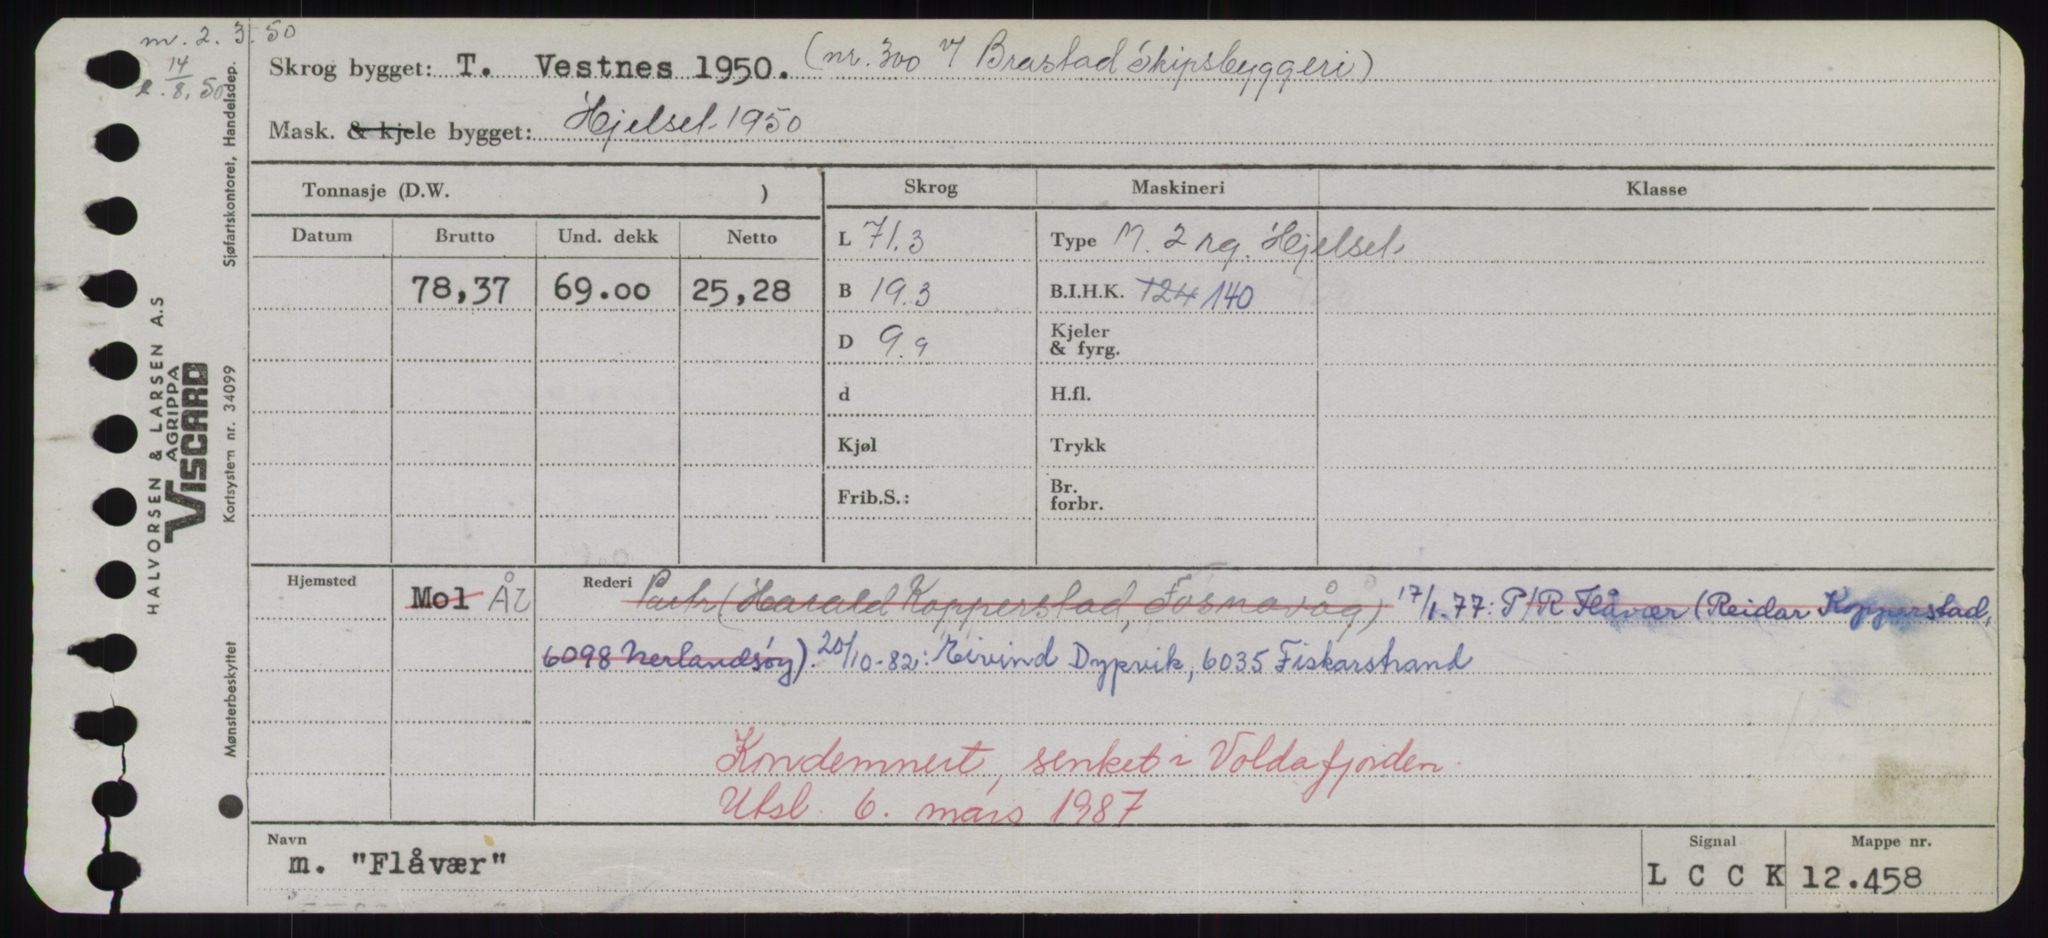 m. 2. 3. 50
14/8. 50
Skrog bygget: T. Vestnes 1950. (nr. 300 v/ Brastad Skipsbyggeri)
Mask. & kjele bygget: Hjelset 1950
Tonnasje (D.W. )
Skrog Maskineri Klasse
Datum Brutto Und. dekk Netto
L 71.3 Type M. 2 rg. Hjelset
78,37 69.00 25,28
B 19.3 B.I.H.K. 124 140
D 9.9 Kjeler & fyrg.
d H.fl.
Kjøl Trykk
Frib.S.: Br. forbr.
Hjemsted Mol Ål Rederi Partr (Harald Kopperstad, Fosnavåg) 17/1.77: P/R Flåvær (Reidar Kopperstad,
6098 Nerlandsøy). 20/10-82: Eivind Dypvik, 6035 Fiskarstrand
Kondemnert, senket i Voldafjorden.
Utsl. 6. mars 1987
Navn Signal Mappe nr.
m. "Flåvær" L C C K 12.458
HALVORSEN & LARSEN A.S
AGRIPPA
VISCARD
Mønsterbeskyttet Kortsystem nr. 34099 Sjøfartskontoret, Handelsdep.